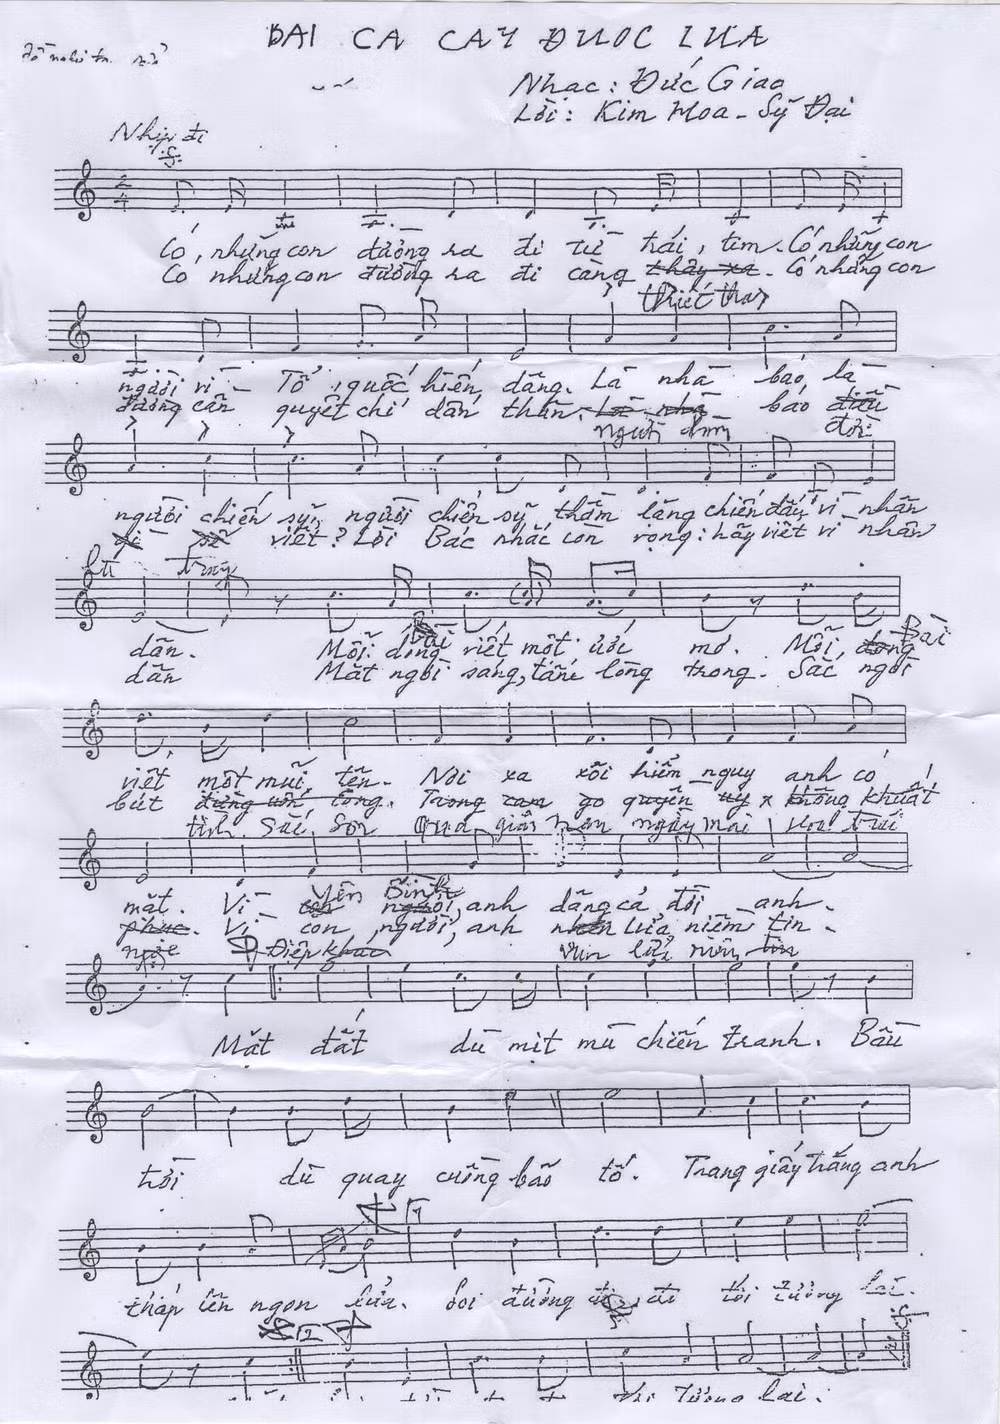 BÀI CA CÂY ĐUỐC LỬA
Nhạc: Đức Giao
Lời: Kim Hoa - Sỹ Đại
Nhịp đi
Có, những con đường ra đi từ trái, tim. Có những con
Có những con đường ra đi càng thấy xa. Có những con
thiết tha
người vì Tổ quốc hiến dâng. Là nhà báo, là
đường cần quyết chí dấn thân. Là nhà báo
người làm đời
người chiến sỹ, người chiến sỹ thầm lặng chiến đấu vì nhân
viết? Lời Bác nhắc con vọng: hãy viết vì nhân
dân. Mỗi dòng viết một ước mơ. Mỗi, dòng
Bài
dân Mắt ngời sáng, tấm lòng trong. Sắc ngòi
viết một mũi, tên. Nơi xa xôi hiểm nguy anh có
bút đừng uốn cong. Trong gian quyền uy không khuất
tình. Sắt, Son Qua gian nan ngày mai
mặt. Vì con người, anh dâng cả đời anh.
Yên Bình
phục. Vì con người, anh nhân lửa, niềm tin.
Điệp khúc
vun lửa niềm tin
Mặt đất dù mịt mù chiến tranh. Bầu
trời dù quay cuồng bão tố. Trang giấy trắng anh
thắp lên ngọn lửa. Soi đường đi, đi tới tương lai.
tương lai.